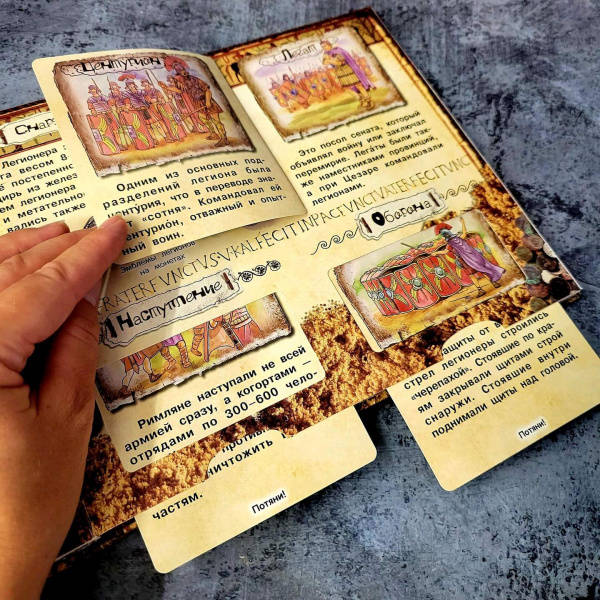 Центурион
Одним из основных под-
разделений легиона была
центурия, что в переводе зна-
«сотня». Командовал ей
центурион, отважный и опыт-
ный воин.
Легат
Это посол сената, который
объявлял войну или заключал
перемирие. Легаты были так-
же наместниками провинций.
При Цезаре командовали
легионами.
Легионера
весом 8
постепенно
из желез
легионера
метательно
также
эмблемы легионов
на монетах
Наступление
Римляне наступали не всей
армией сразу, а когортами –
отрядами по 300–600 чело-
против
уничтожить
частям.
Потяни!
Оборона
защиты от
стрел легионеры строились
«черепахой». Стоявшие по кра-
ям закрывали щитами строй
снаружи. Стоявшие внутри
поднимали щиты над головой.
Потяни!